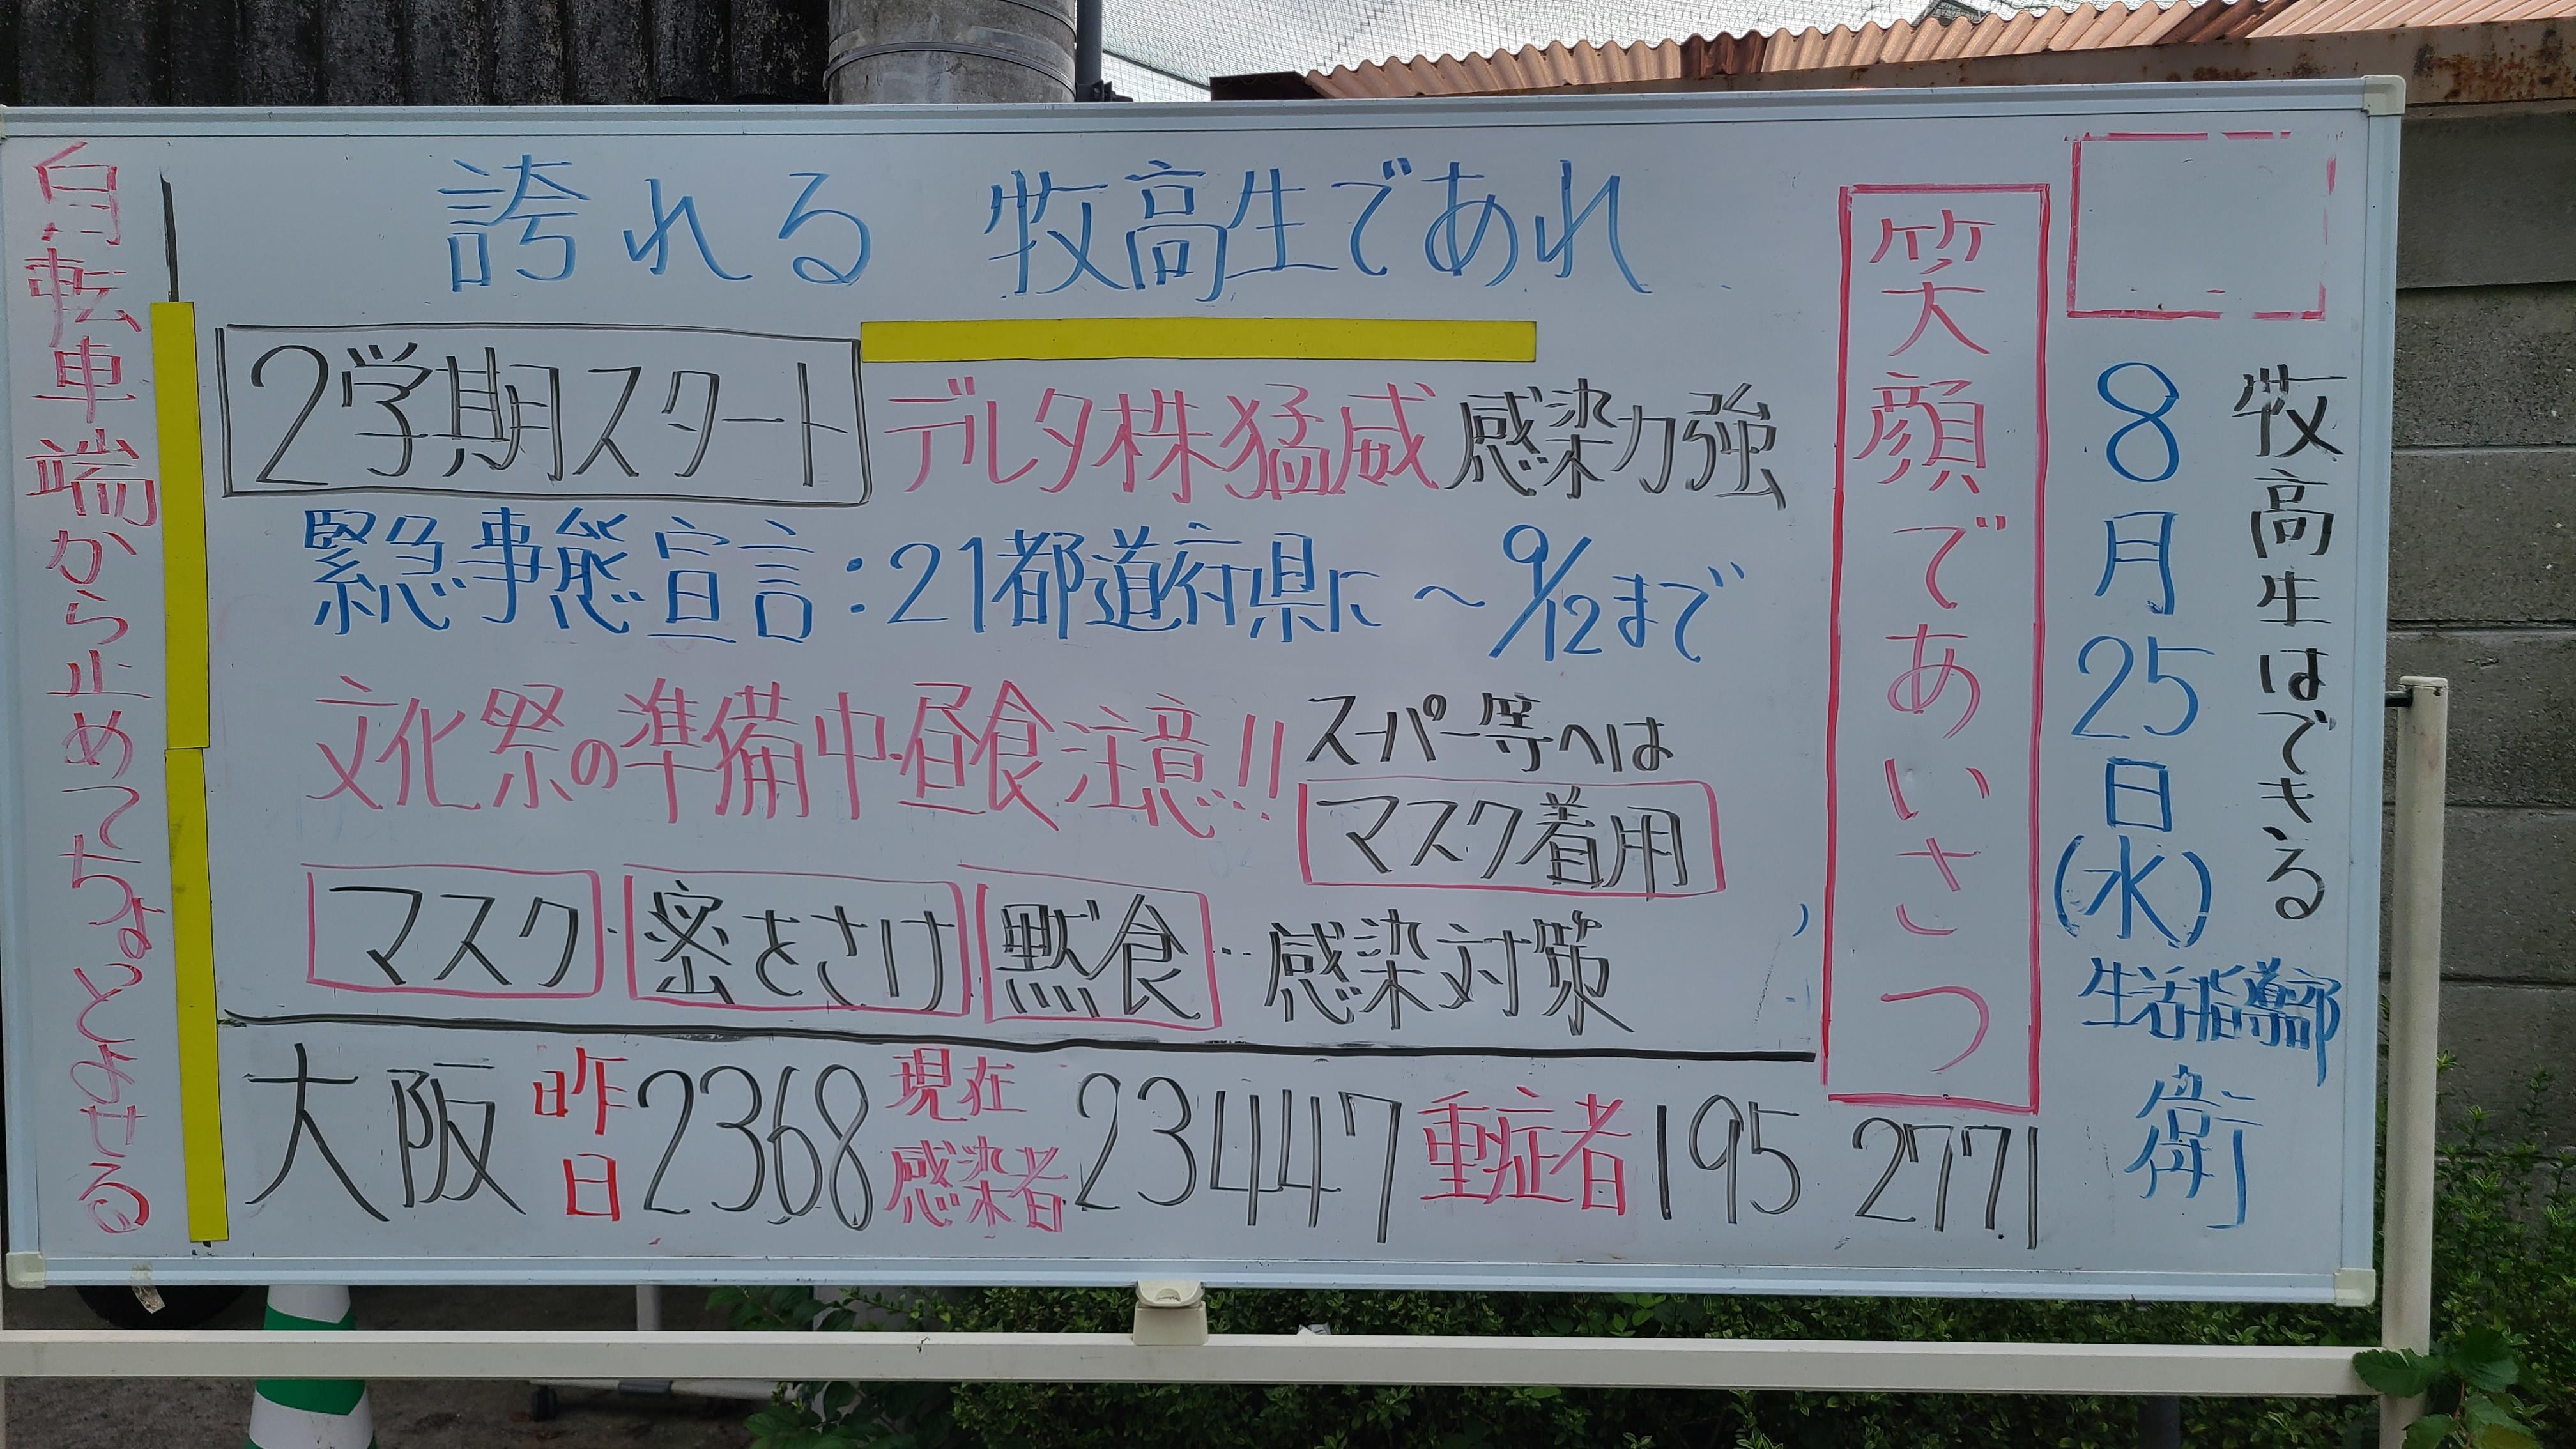 牧高生はできる
8月25日(水)
生活指導部
衛
笑顔であいさつ
誇れる 牧高生であれ
2学期スタート デルタ株猛威 感染力強
緊急事態宣言:21都道府県に ~9/12まで
文化祭の準備中・昼食注意!!
スーパー等へは
マスク着用
マスク・密をさけ 黙食‥感染対策
大阪 昨日 2368 現在感染者 23447 重症者 195 2771
自転車端から止めてちょとみせる